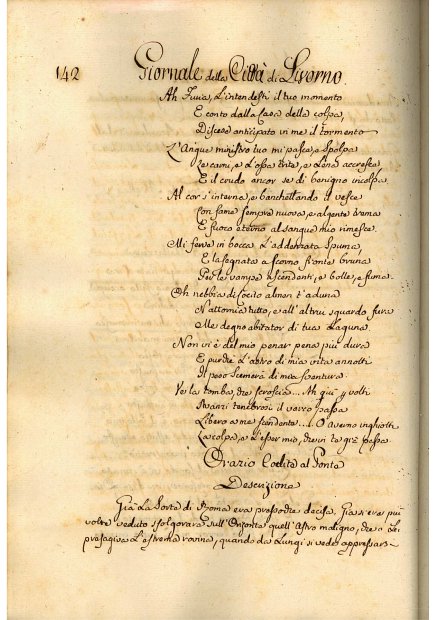 142 Giornale della Città di Livorno
Ah Furia, L'intendesti il tuo momento
E conto dalla Casa della colpa,
Discese anticipato in me il tormento
L'Angue ministro tuo mi pasce, e spolpa
Le carni, e l'ossa trita, e lena accresce
E il crudo ancor se di benigno incolpa
Al cor s'interna, e banchettando il
Con fame sempre nuova, e algente trema
E fuoco eterno al sangue mio rimesce.
Mi ferve in bocca l'addensata spuma,
E la segnata a scorno fronte bruna
Per le vampe ascendenti, e bolle, e fuma.
Oh nebbia di Cocito almen t'aduna
N'attornia tutto, e all'altrui sguardo fura
Me degno abitator di tua Laguna.
Non vi è del mio penar pena più dura
E purchè l'astro di mia vita annotti
Il peso scemerà di mia sventura
Ve la tomba, che scroscia... Ah qui
Svanzi tenebrosi il varco passa
Libero a me scendente.... O averno inghiotti
La colpa, e l'esser mio,
Orazio Coclite al Ponte
Descrizione
Già la Sorte di Roma era pressochè decisa. Già si era più
volte veduto sfolgorara sull'Orizonte quell'Astro maligno, che a Lei
presagiva l'estrema rovina, quando da lungi si vede appressars-